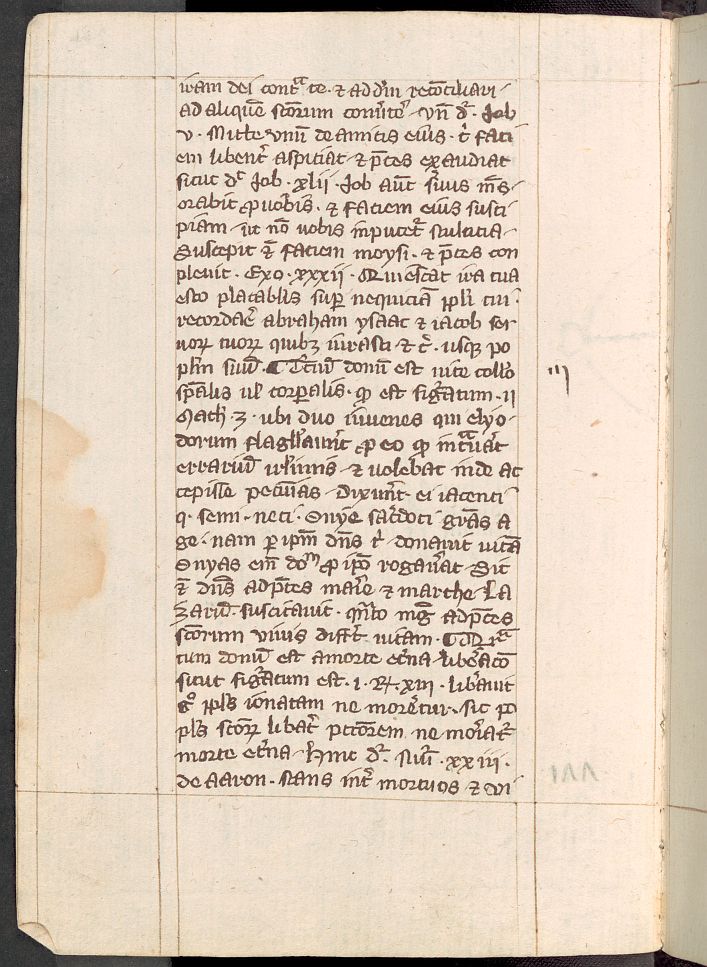 iram dei contᵃ te · ⁊ ad dn̄i reconciliari
ad aliquē sc̄orum conu̓te̓ · vn̄ dr̄ · Job
v · Mitte vnū de amicis eius · t̓ faci
em libent̓ aspiciat · ⁊ p̄ces exaudiat
sicut dr̄ Job · xlii · Job aūt s̓uus m̄s ·
orabit ꝓ uobis · ⁊ faciem eius susci
piam · ut nō uobis inputet̓ stulticia ·
Suscepit .n̄. faciem moysi · ⁊ p̄ces con
pleuit · Exo · xxxii · Quiescat ira tua
esto placabl̓is sup̲ nequiciā ppl̓i tui ·
recordae̓ abraham ysaac ⁊ iacob ser
uoꝝ tuoꝝ quibꝫ iurasti · ⁊ c̓ · usqꝫ po
pl̄m suū · ¶ Tc̓iū donū est uite coll̓o
sp̄alis ul̓ corp̲alis · ꝙ est fig̓atum · ii
Mach · 3 · ubi duo iuuenes qui elyo
dorum flagell̓aue̓nt ꝓ eo ꝙ int̓ᵃuāt
errariū ir̄l̓imis · ⁊ uolebat inde ac
cepisse pecunias · Dixe̓nt · ei iacenti
q · semi · neci · Onye sac̓doti gr̄as a
ge · nam p̲ ip̄m dn̄s t̓ · donauit uitā
Onyas em̄ doᵐ ꝓ ip̄o rogau̓at · Sic
⁊ dn̄s ad p̄ces marie ⁊ marthe · La
zarū · suscitauit · qn̄to mg̓ ad p̄ces
sc̄orum viuis diff̓t · uitam · ¶ Qᵃr
tum donū est a morte et̓na lib̓acō
sicut fig̓atum est · i · Rꝫ · xiii · lib̓auit
g̊ ppl̓s ionatam ne more̓tur · sic po
pl̓s sc̄oꝝ lib̓at̓ pctōrem ne moriat̓
morte et̓na · hinc dr̄ · Nūi · xxiii ·
de Aaron · stans int̓ mortuos ⁊ vi
iii